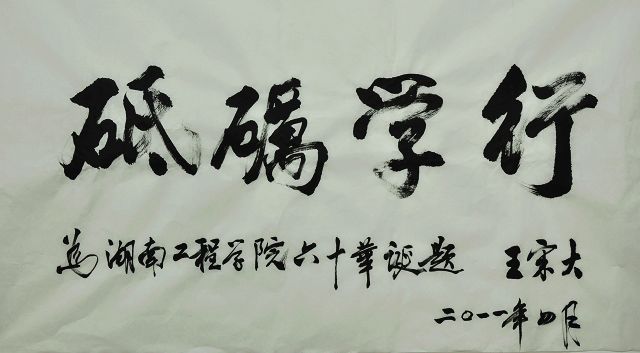 砥礪学行
為湖南工程学院六十華诞题 王宋大
二〇一一年四月